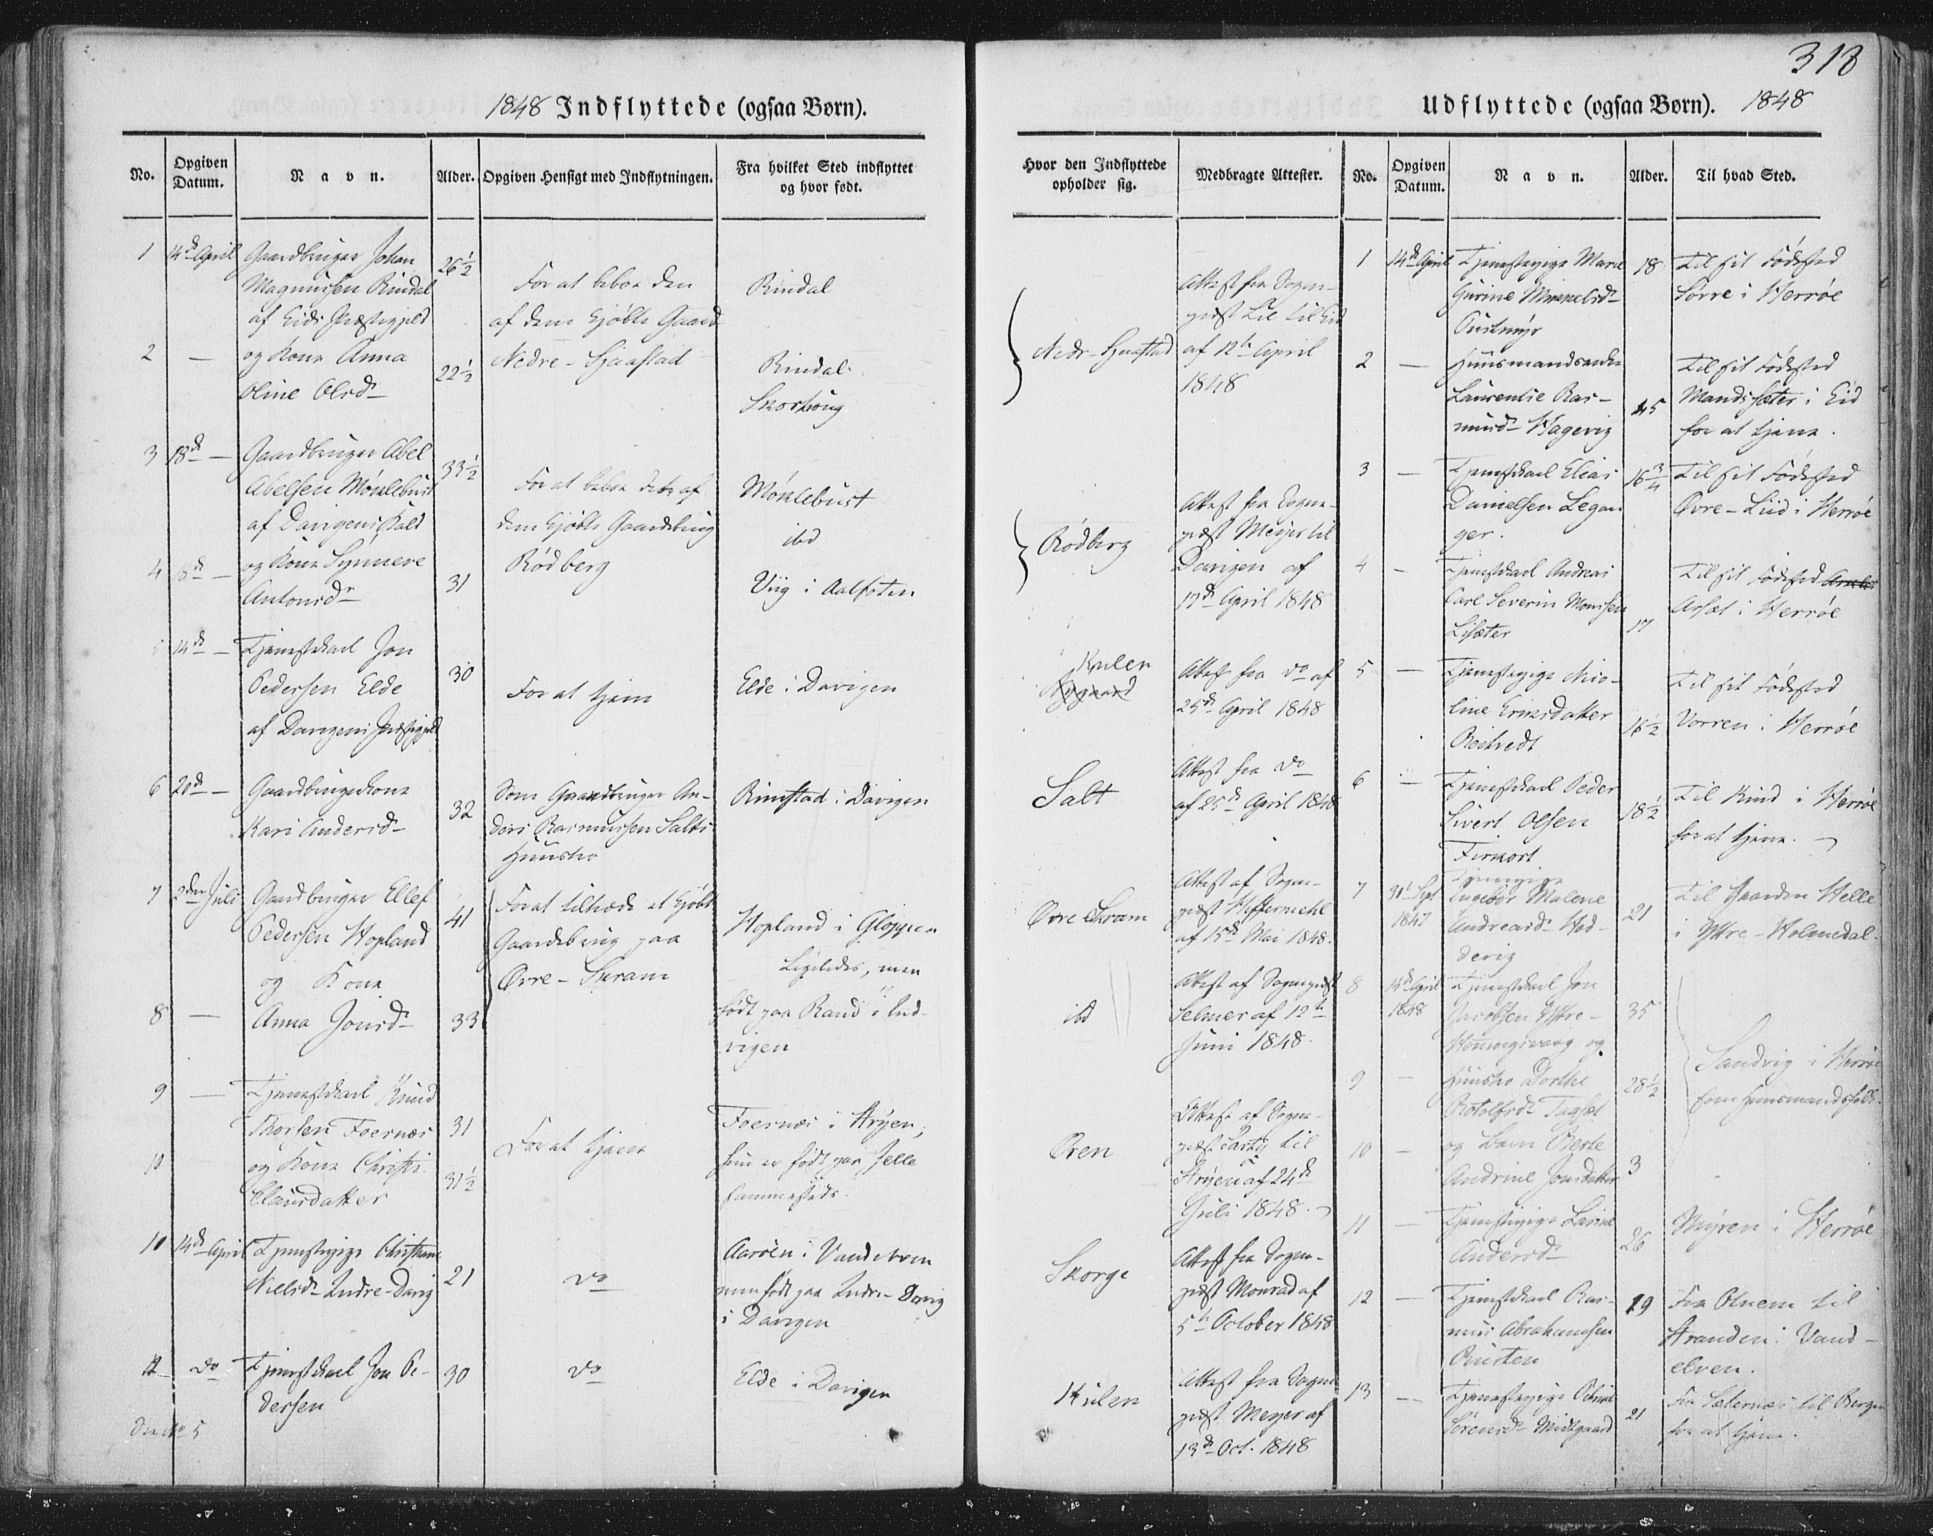 318
1848 Indflyttede (ogsaa Børn).
No.
Opgiven
Datum.
Navn.
Alder.
Opgiven Hensigt med Indflytningen.
Fra hvilket Sted indflyttet
og hvor født.
1
14de April
Gaardbruger Johan
Magnusen Rindal
af Eids Præstegjeld
26½
For at beboe den
af dem kjøbte Gaard
Nedre-Hjaastad
Rindal
2
—
og Kone Anna
Oline Olsd
22½
Rindal
3
18de —
Gaardbruger Abel
Abelsen Møklebust
af Davigens Kald
33½
For at beboe det af
dem kjøbte Gaardsbrug
Rødberg
Møklebust
ibd
4
18de —
og Kone Synneve
Antonsdr
31
Viig i Aalfoten
5
14de —
Tjenestekarl Jon
Pedersen Elde
af Davigens Præstegjeld
30
For at tjene
Elde i Davigen
6
20de —
Gaardbrugerkone
Kari Andersd
32
Som Gaardbruger An-
ders Rasmussen Salts
Huustro
Rimstad i Davigen
7
2den Juli
Gaardbruger Ellef
Pedersen Hopland
og Kone
41
For at tiltræde et kjøbt
Gaardsbrug paa
Øvre-Skram
Hopland i Gloppen
Ligeledes, men
født paa Rand i Ind-
vigen
8
—
Anna Jonsd
33
9
—
Tjenestekarl Knud
Thorsen Foernæs
31
For at tjene
Foernæs i Stryen,
hun er født paa Jelle
sammesteds.
10
og Kone Christi
Clausdatter
31½
10
14de April
Tjenestepige Christiane
Nielsd Indre-Davig
21
do
Aarøen i Vandelven
men født paa Indre-Davig
i Davigen
12
do
Tjenestekarl Jon Pe-
dersen
30
do
Elde i Davigen
Udflyttede (ogsaa Børn). 1848
Hvor den Indflyttede
opholder sig.
Medbragte Attester.
No.
Opgiven
Datum.
Navn.
Alder.
Til hvad Sted.
Nedr-Hjaastad
Attest fra Sogne-
præst til Eid
af 12te April
1848
Rødberg
Attest fra Sogne-
præst Meyer til
Davigen af
17de April 1848
Kulen
Attest fra do af
25de April 1848
Salt
Attest fra do
af 25de April 1848
Øvre Skram
Attest af Sogne-
præst Heffermehl
af 15de Mai 1848.
ibd
Attest af Sognepræst
Selmer af 12te
Juni 1848.
Øren
Attest af Sogne-
præst til
Stryen af 24de
Juli 1848.
Skorge
Attest fra Sogne-
præst Monrad af
5te October 1848
Kulen
Attest fra Sogne-
præst Meyer af
13de Oct. 1848
1
14de April
Tjenestepige Marie
Gurine Mikkelsd
18
Til sit Fødested
i Herrøe
2
—
Huusmandsenke
Laurentse Ras-
musd Hagevig
45
Til sit Fødested
Mandssæter i Eid
for at tjene.
3
—
Tjenestekarl Elias
Danielsen Legan-
ger.
16¾
Til sit Fødested
Øvre-Liid i Herrøe
4
—
Tjenestekarl Andreas
Carl Severin Monssen
Lisæter
17
Til sit Fødested
i Herrøe
5
—
Tjenestepige
line Ernsdatter
16½
Til sit Fødested
Vorren i Herrøe
6
—
Tjenestekarl Peder
Sivert Olsen
18½
Til Rind i Herrøe
for at tjene.
7
Sept
1847
Tjenestepige
Ingebor Malene
Andreasd Hod-
devig
21
Til Gaarden Helle
i Yttre-Holmedal.
8
14de April
1848
Tjenestekarl Jon
Jacobsen Yttre-
Houngsvaag og
35
Sandvig i Herrøe
som Huusmandsfolk.
9
—
Huustro Dorthe
28½
10
—
og Barn
Andrine Jonsdatter
3
11
—
Tjenestepige Larine
Andersd
26
Myren i Herrøe
12
—
Tjenestekarl Ras-
mus Abrahamsen
19
Fra til
Stranden i Vand-
elven.
13
—
Tjenestepige
Sørensd Midtgaard
21
Fra Sæternæs til Bergen
for at tjene.